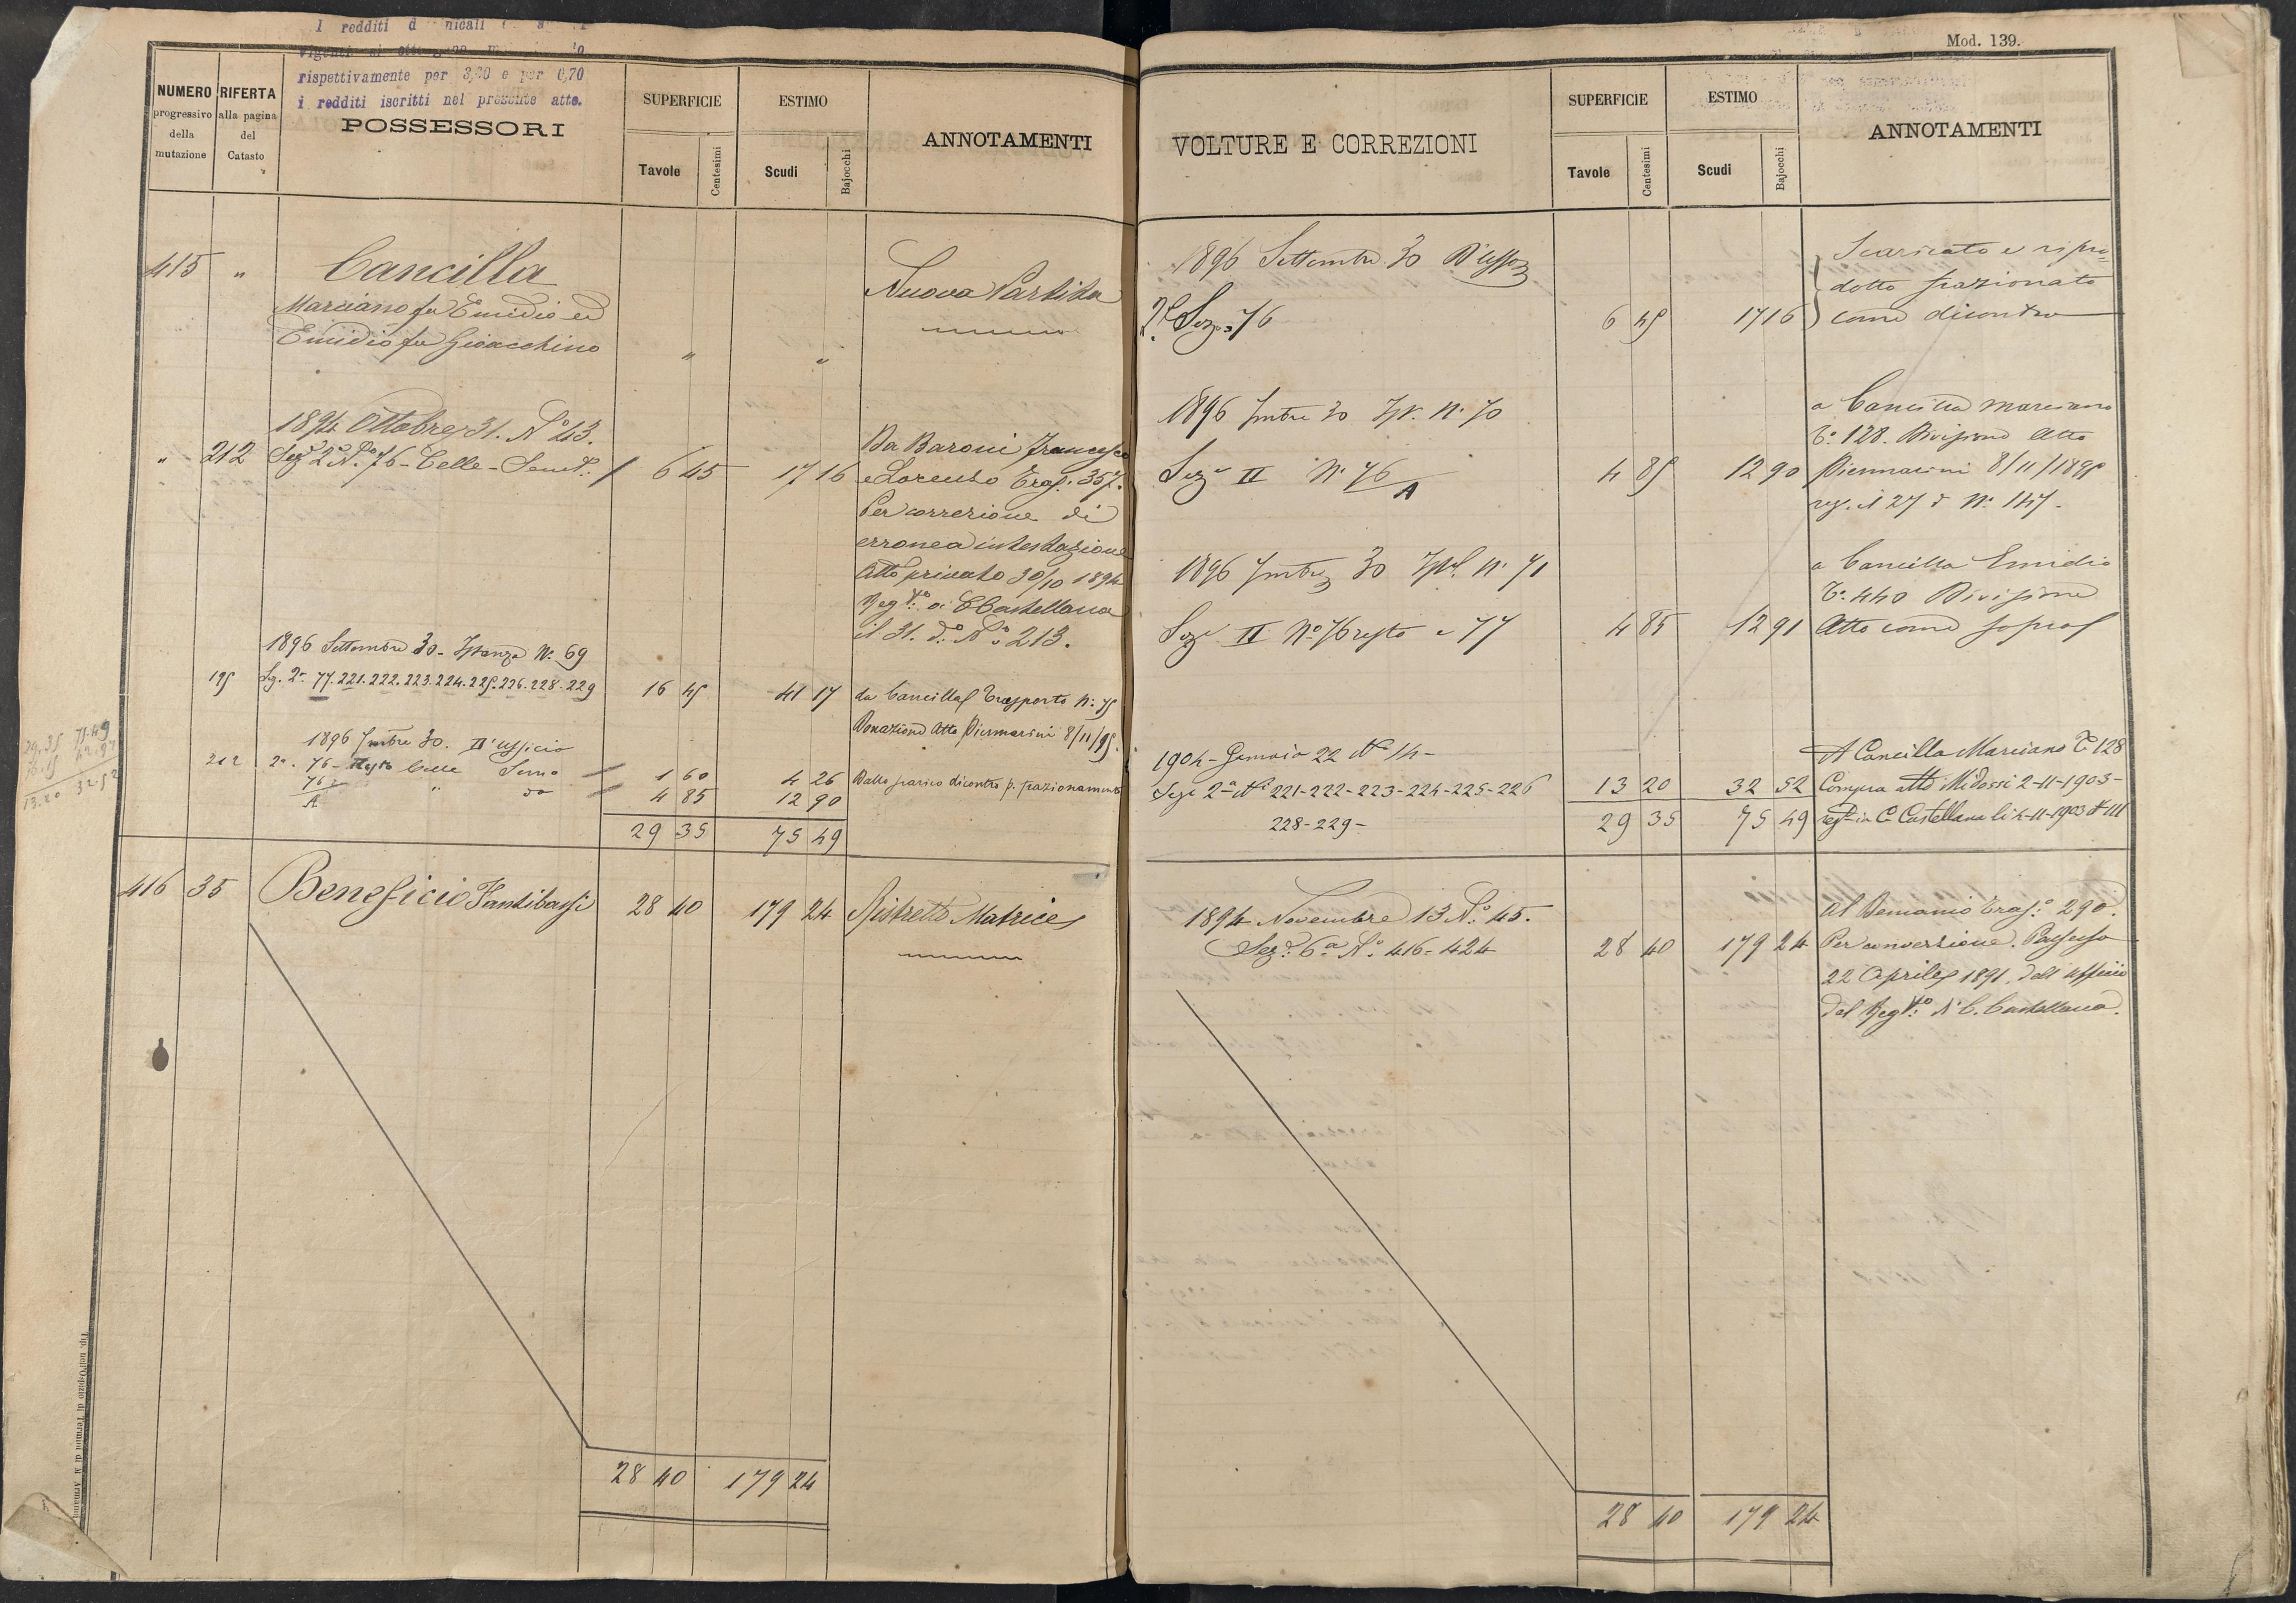 I redditi
rispettivamente per 3,20 e per 0,70
i redditi iscritti nel presente atto.
NUMERO
progressivo
della
mutazione
RIFERTA
alla pagina
del
Catasto
POSSESSORI
SUPERFICIE
Tavole
Centesimi
ESTIMO
Scudi
Bajocchi
ANNOTAMENTI
415 " Cancilla Nuova Partita
Marciano fu Emidio ed
Emidio fu Gioacchino " "
1894 Ottobre 31. N.º 43.
" 212 Sezᵉ 2ª N.º 76 - Celle - Semᵒ. 6 45 17 16
Da Baroni Francesco
e Lorenzo Trasᵗ. 357.
Per correzione di
erronea intestazione
Atto privato 30/10 1894
Regᵗᵒ: a C Castellana
il 31. dº. Nº 213.
1896 Settembre 30 - Istanza Nº 69
195 Sez. 2ª 77. 221. 222. 223. 224. 225. 226. 228. 229 16 45 41 17
da Cancilla Trasporto Nº 75
Donazione Atto Piermarini 8/11/95.
1896 7mbre 30. D'ufficio
212 2ª. 76 - Resto Celle Semo 1 60 4 26
76/A " do 4 85 12 90
Dallo scarico dicontro p. frazionamento
29 35 75 49
29.35 75.49
16.15 42.97
13.20 32.52
416 35 Beneficio Fantibassi 28 40 179 24 Ristretto Matrice
28 40 179 24
Mod. 139.
VOLTURE E CORREZIONI
SUPERFICIE
Tavole
Centesimi
ESTIMO
Scudi
Bajocchi
ANNOTAMENTI
1896 Settembre 30 D'uffᵒ
2ª Sezᵉ 76 6 45 17 16
Scaricato e ripro=
dotto frazionato
come dicontro
1896 7mbre 30 Isᵗ. Nº 70
Sezᵉ II Nº 76/A 4 85 12 90
a Cancilla Marciano
Tº. 128. Divisione Atto
Piermarini 8/11/1895
reg. il 27 d Nº 147.
1896 7mbre 30 Isᵗ. Nº 71
Sezᵉ II Nº 76 resto e 77 4 85 12 91
a Cancilla Emidio
Tº. 440 Divisione
Atto come sopra
1904 - Gennaio 22 Nº 14 -
Sezᵉ 2ª Nⁱ 221-222-223-224-225-226 13 20 32 52
228-229- 29 35 75 49
A Cancilla Marciano Tº 128
Compra atto Midossi 2-11-1903-
regᵗᵒ in Cª Castellana li 4-11-1903 Nº 111
1894 Novembre 13 N.º 45.
Sezᵉ. 6ª N.º 416-424 28 40 179 24
Al Demanio Trasᵗᵒ. 290.
Per conversione. Possesso
22 Aprile 1891, dell Ufficio
del Regᵗᵒ: di C. Castellana.
28 40 179 24